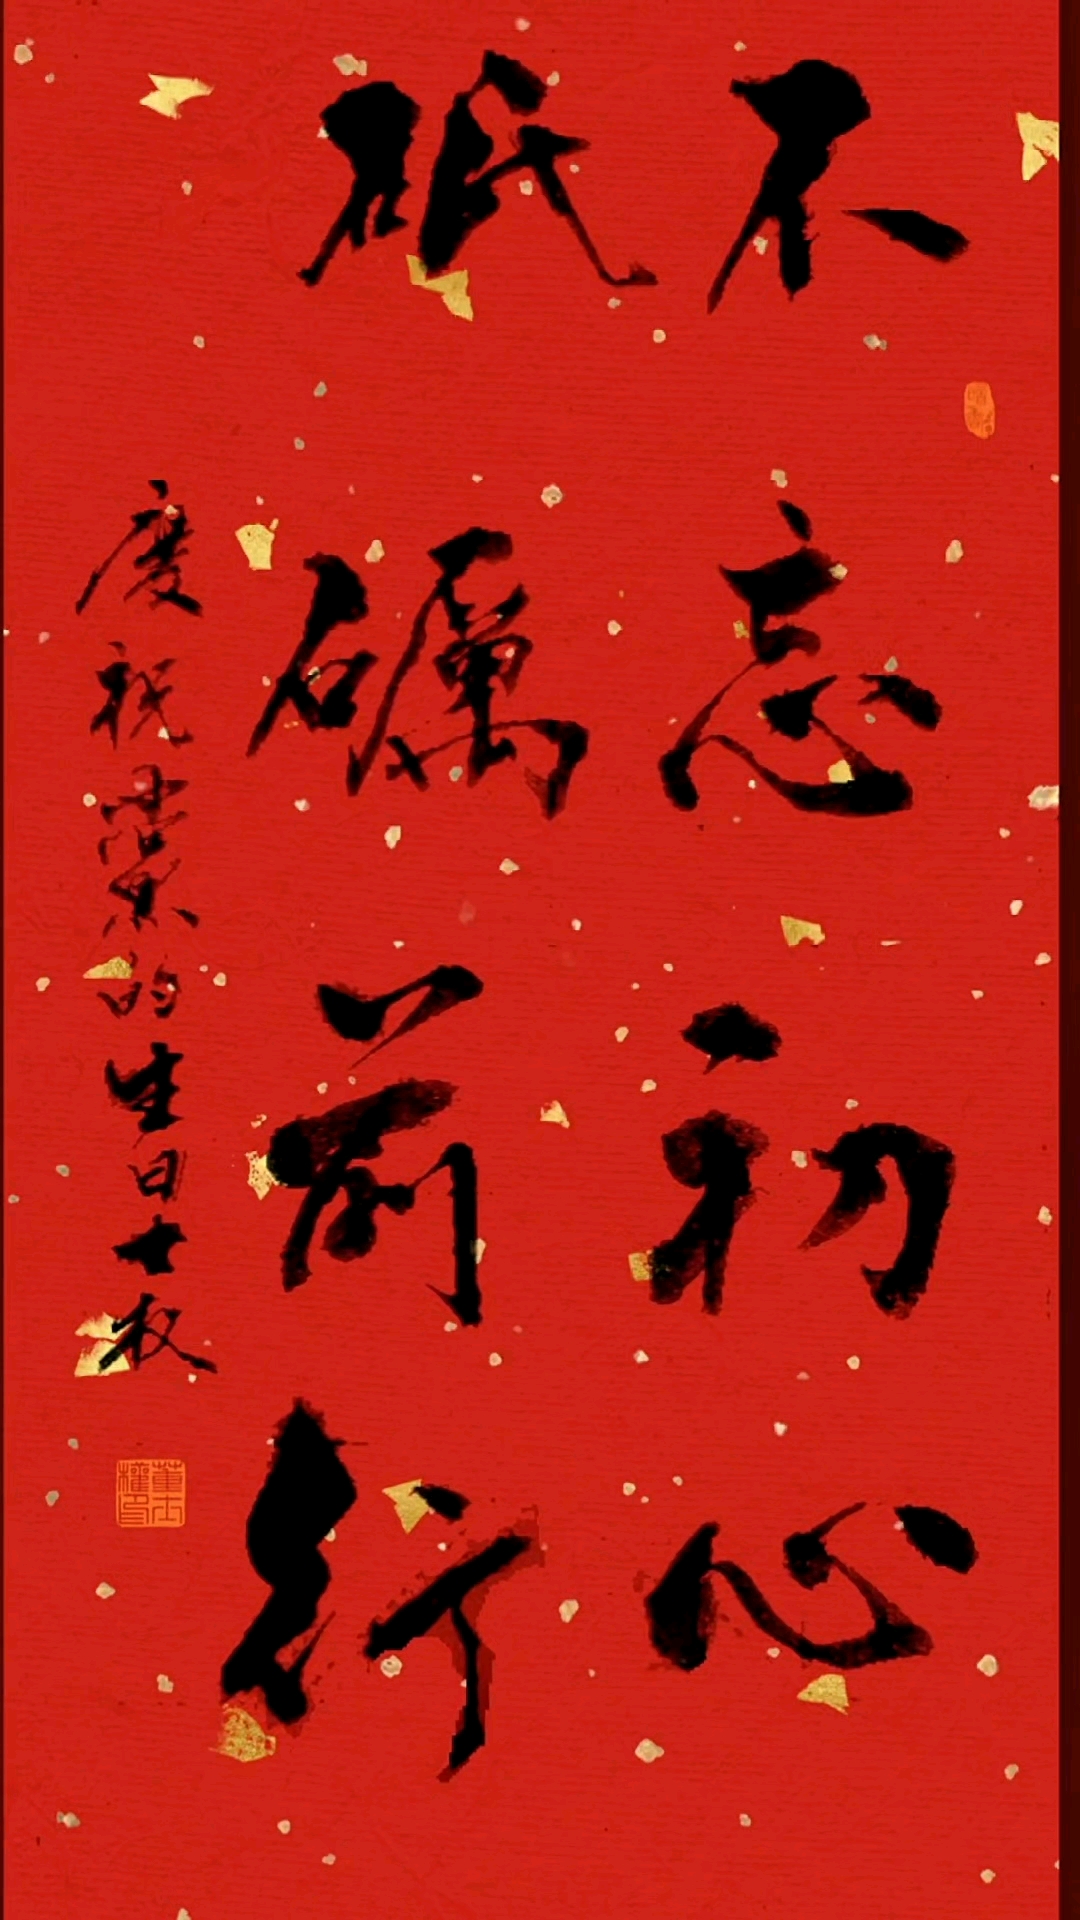 不忘初心
砥礪前行
慶祝黨的生日士权
董士權印